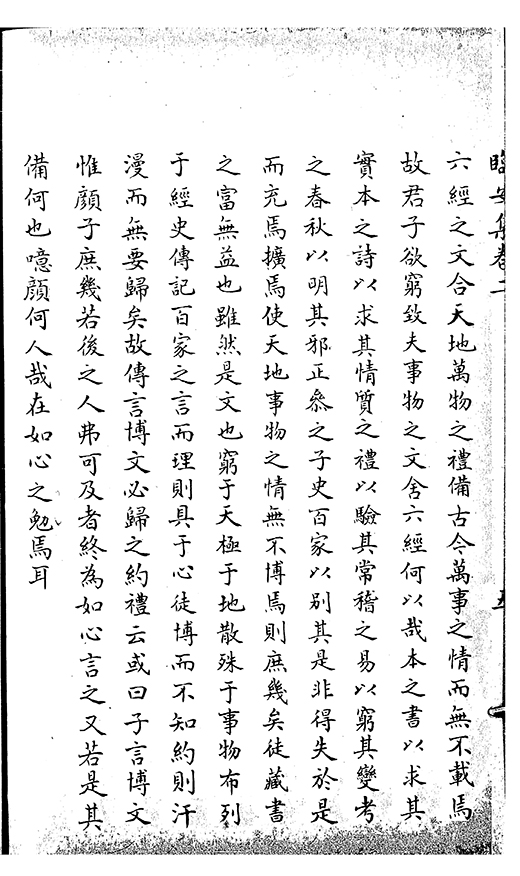 臨安集卷二
六經之文合天地萬物之禮備古今萬事之情而無不載焉
故君子欲窮致夫事物之文舍六經何以哉本之書以求其
實本之詩以求其情質之禮以驗其常稽之易以窮其變考
之春秋以明其邪正叅之子史百家以别其是非得失於是
而充焉擴焉使天地事物之情無不博焉則庶幾矣徒藏書
之富無益也雖然是文也窮于天極于地散殊于事物布列
于經史傳記百家之言而理則具于心徒博而不知約則汗
漫而無要歸矣故傳言博文必歸之約禮云或曰子言博文
惟顔子庶幾若後之人弗可及者終為如心言之又若是其
備何也噫顔何人哉在如心之勉焉耳